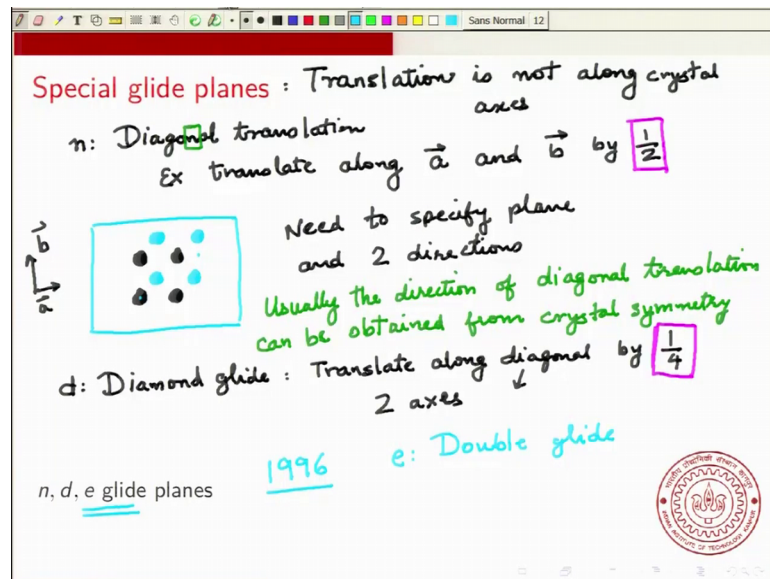 Sans Normal 12
Special glide planes : Translation is not along crystal
axes
n: Diagonal translation
Ex translate along a and b by 1/2
b
a
Need to specify plane
and 2 directions
Usually the direction of diagonal translation
can be obtained from crystal symmetry
d: Diamond glide : Translate along diagonal by 1/4
2 axes
1996 e: Double glide
n, d, e glide planes
INDIAN INSTITUTE OF TECHNOLOGY KANPUR